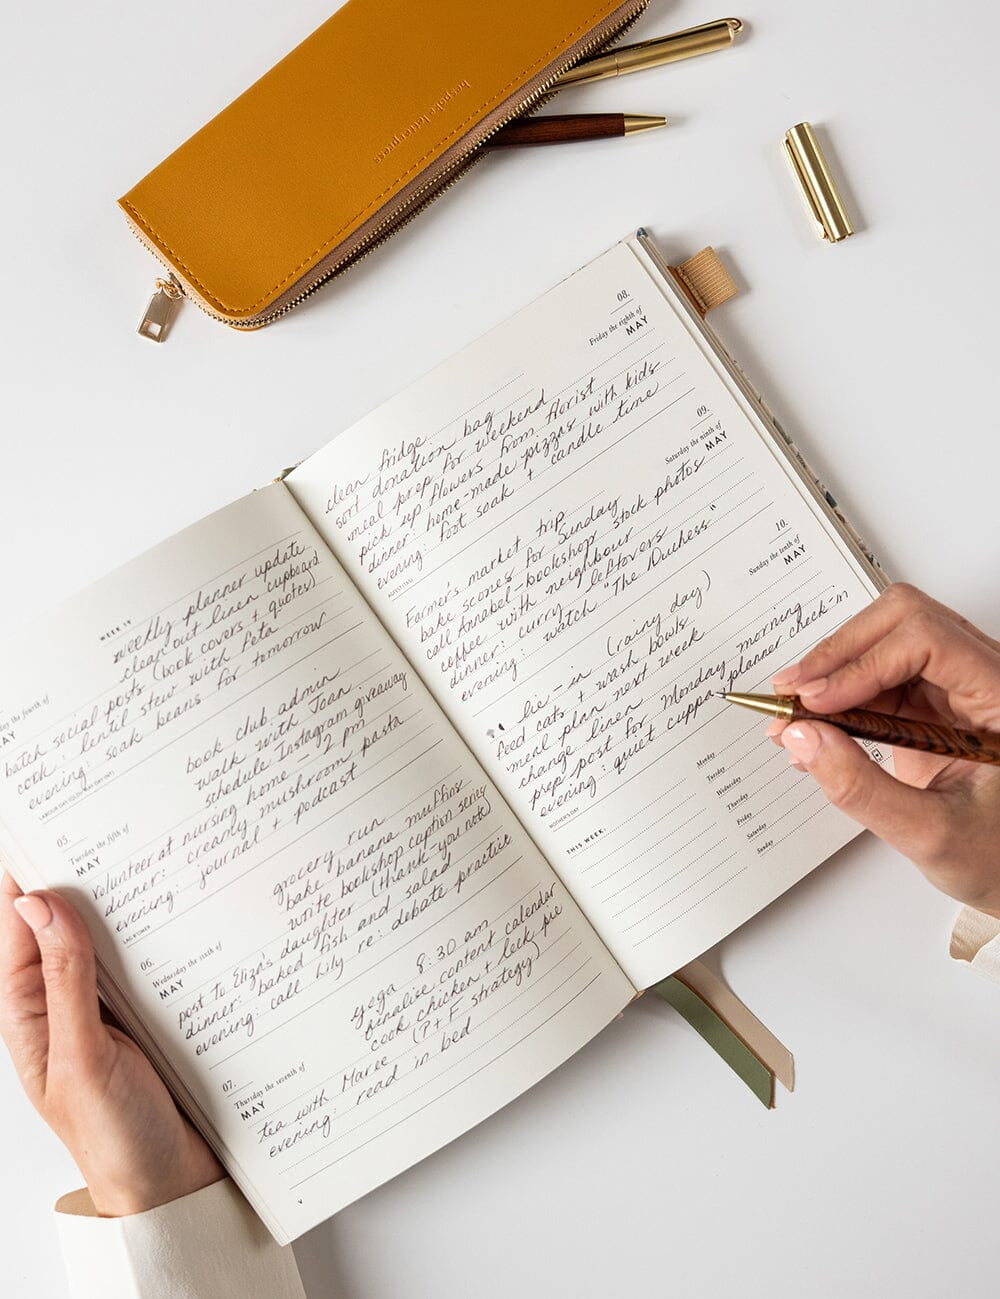 bespoke letterpress
WEEK 19
the fourth of
MAY
weekly planner update
clean out linen cupboard
batch social posts (book covers + quotes)
cook: lentil stew with feta
evening soak beans for tomorrow
LABOUR DAY (QLD), MAY DAY (NT)
05.
Tuesday the fifth of
MAY
book club admin
walk with Joan
schedule Instagram giveaway
volunteer at nursing home - 2 pm
dinner: creamy mushroom pasta
evening: journal + podcast
LAG B'OMER
06.
Wednesday the sixth of
MAY
grocery run
bake banana muffins
write bookshop caption series
post to Eliza's daughter (thank-you note)
dinner: baked fish and salad
evening: call Lily re: debate practice
07.
Thursday the seventh of
MAY
yoga 8:30 am
finalise content calendar
cook chicken + leek pie
tea with Maree (P+F strategy)
evening: read in bed
08.
Friday the eighth of
MAY
clean fridge
sort donation bag
meal prep for weekend
pick up flowers from florist
dinner: home-made pizzas with kids
evening: foot soak + candle time
09.
Saturday the ninth of
MAY
Farmer's market trip
bake scones for Sunday
call Annabel - bookshop stock photos
coffee with neighbour
dinner: curry leftovers
evening: watch "The Duchess"
10.
Sunday the tenth of
MAY
lie-in (rainy day)
feed cats + wash bowls
meal plan next week
change linen
prep post for Monday morning
evening: quiet cuppa + planner check-in
MOTHER'S DAY
THIS WEEK:
Monday
Tuesday
Wednesday
Thursday
Friday
Saturday
Sunday